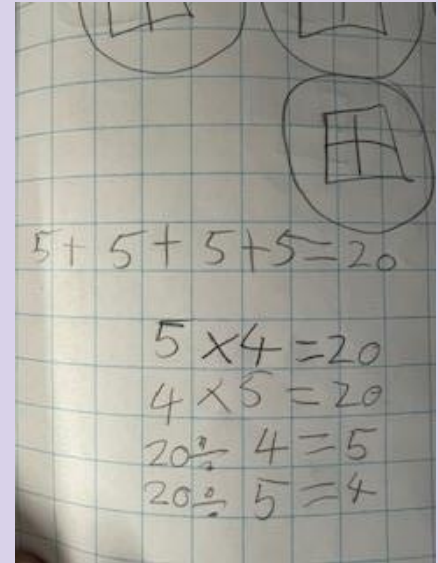 5+ 5+ 5+5=20
5 ×4=20
4 ×5=20
20÷ 4=5
20÷ 5=4